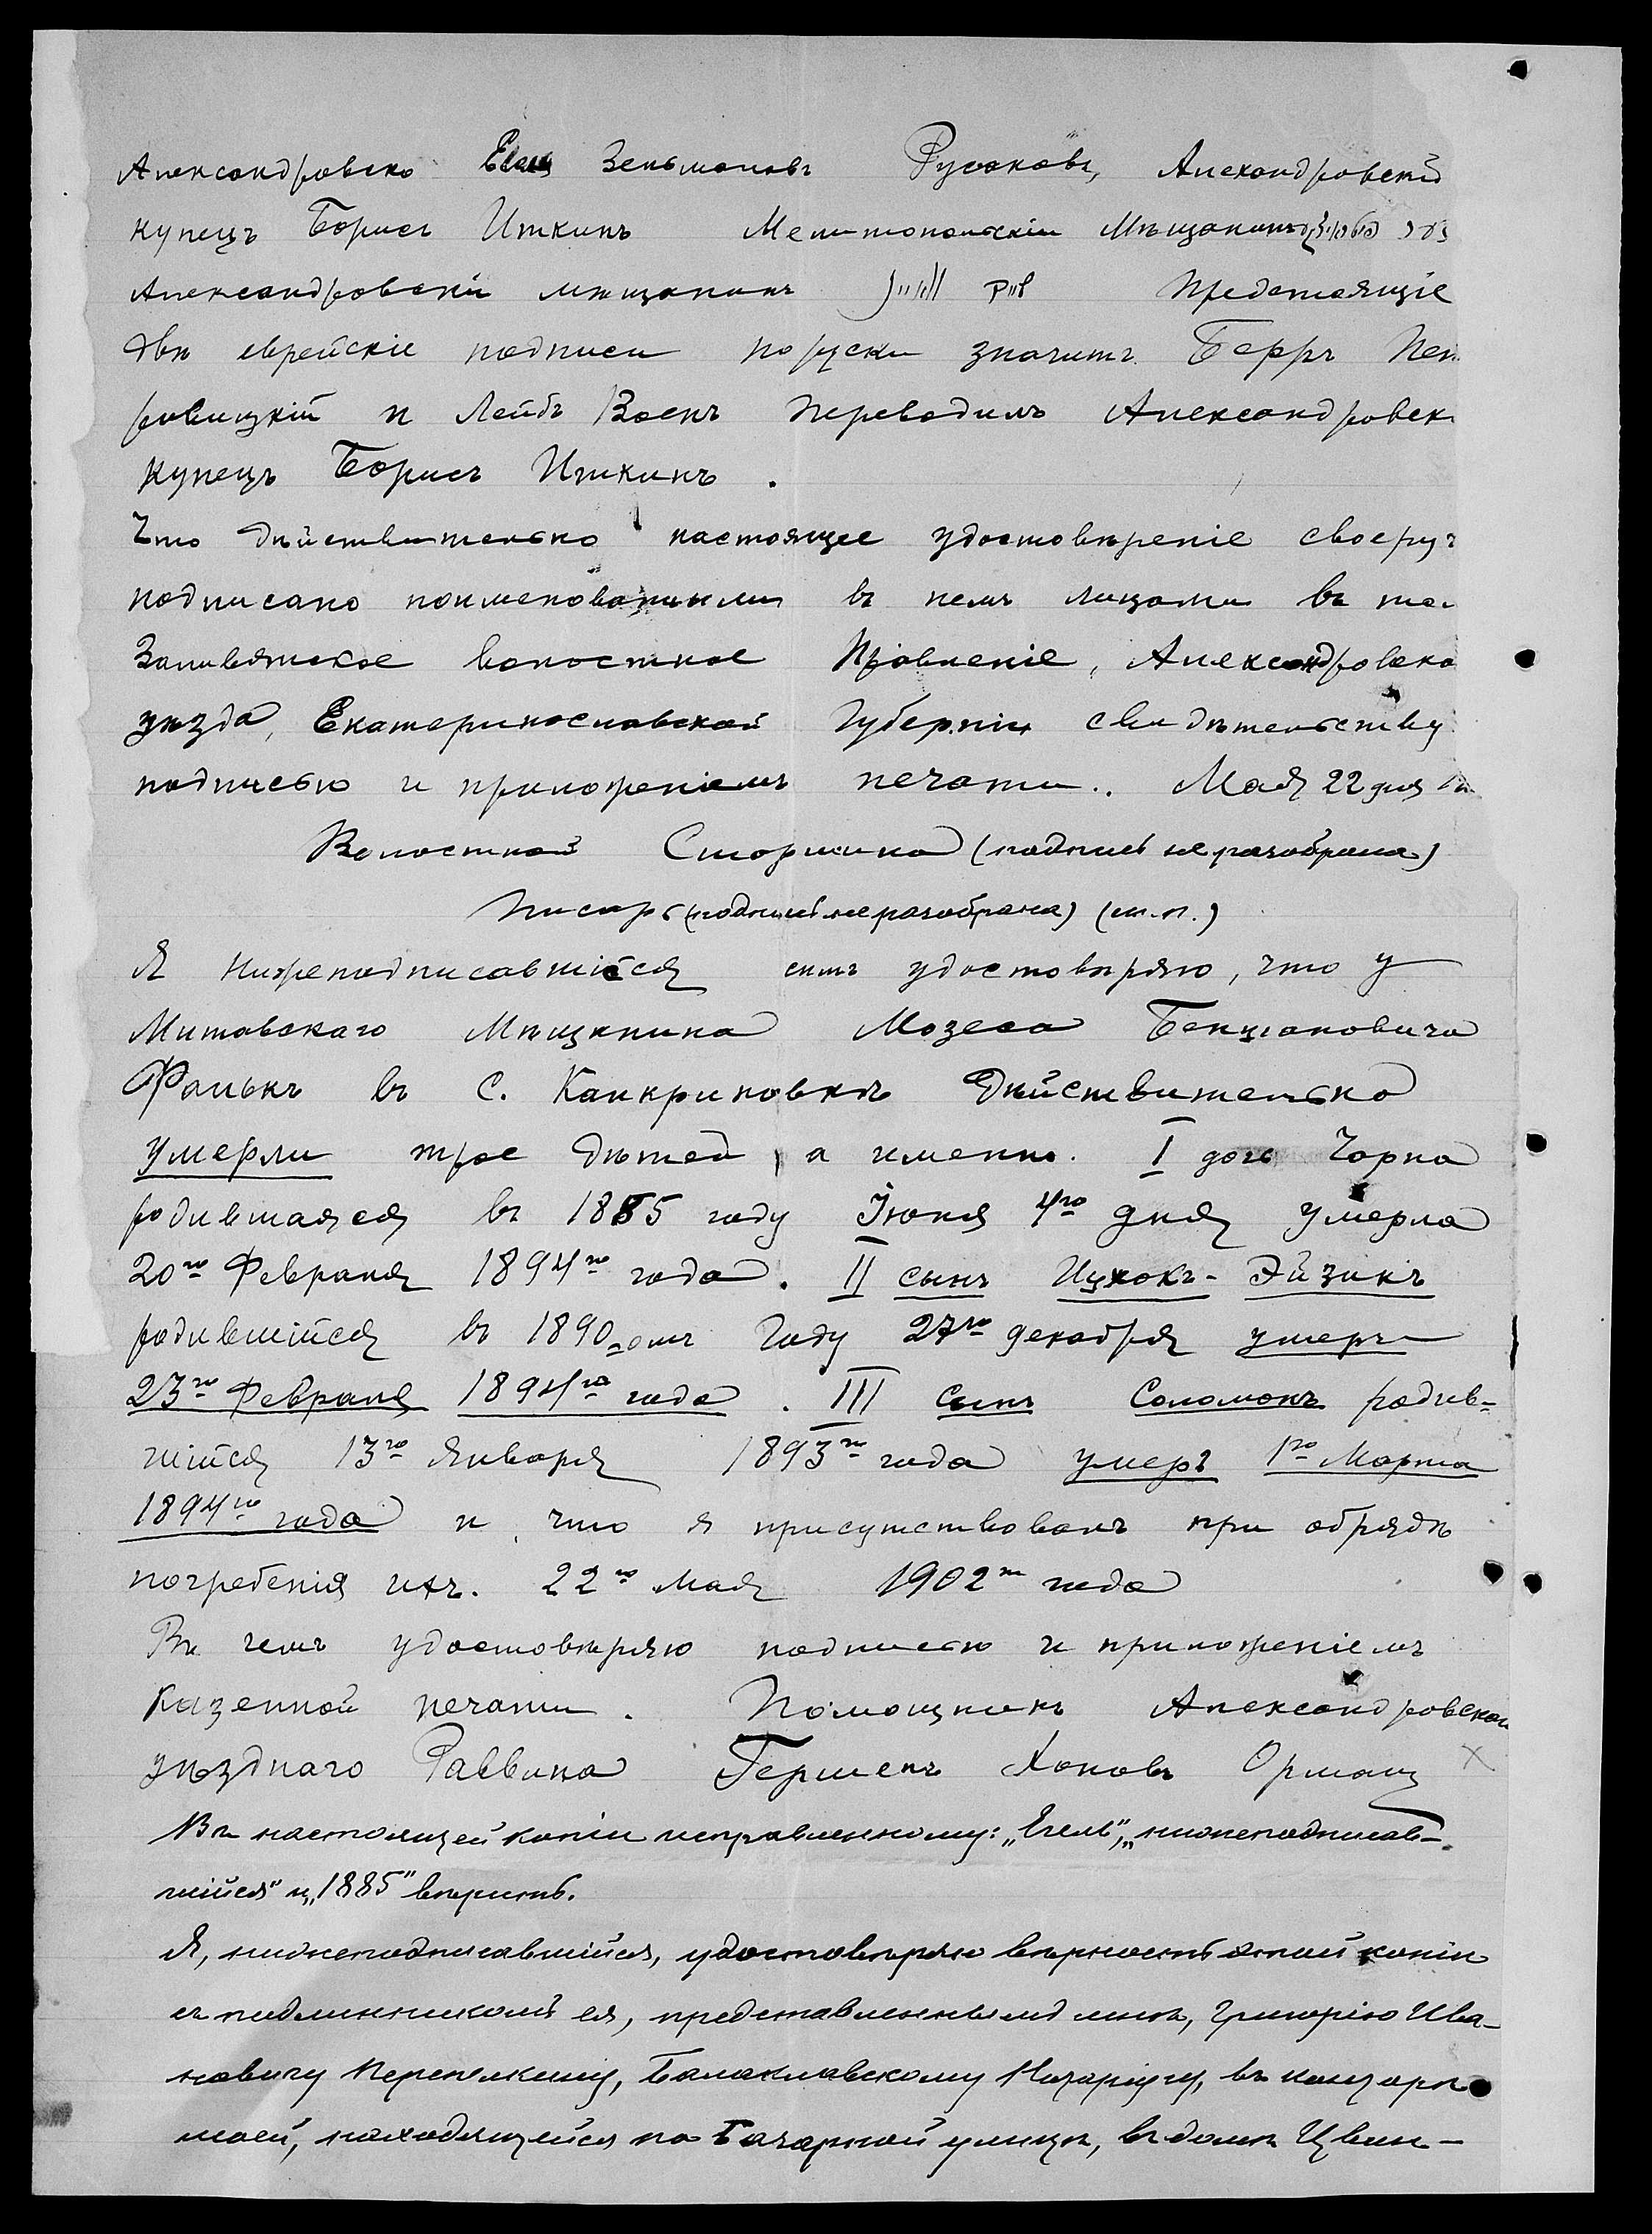 Александровско Зельмановъ Русаковъ, Александровскій
купецъ Борисъ Иткинъ Мелитопольскіи Мѣщанинъ
Александровскій мѣщанинъ Предстоящіе
двѣ еврейскіе подписи по руски значитъ Берръ Пет
ровицкій и Лейбъ Военъ переводилъ Александровск
купецъ Борисъ Иткинъ.
Что дѣйствительно настоящее удостовѣреніе своеруч
подписано поименованными въ немъ лицами въ том
волостное Правленіе, Александровска
уѣзда, Екатеринославской Губерніи свидѣтельству
подписью и приложеніемъ печати.. Мая 22 дня
Волостной Старшина (подпись не разобрана)
Писарь (подпись не разобрана) (м.п.)
Я Нижеподписавшійся симъ удостовѣряю, что у
Митавскаго Мѣщанина Мозеса Бенціановича
Фалькъ въ С. Канкриновкѣ Дѣйствительно
умерли трое дѣтей, а именно. I дочь Чарна
родившаяся въ 1885 году Іюня 4го дня умерла
20го Февраля 1894го года. II сынъ Ицхокъ-Эйзикъ
родившійся въ 1890-омъ Году 27го декабря умеръ
23го Февраля 1894го года. III Сынъ Соломонъ родив-
шійся 13го Января 1893го года умеръ 1го Марта
1894го года и что я присутствовалъ при обрядѣ
погребенія ихъ. 22го Мая 1902го года
Въ чемъ удостовѣряю подписью и приложеніемъ
Казенной печати. Помощникъ Александровскаг
уѣзднаго Раввина Гершенъ Хоновъ Орманъ
Въ настоящей копіи исправленному: „Егель", „нижеподписав-
шійся" и „1885" вѣрить.
Я, нижеподписавшійся, удостовѣряю вѣрность этой копіи
съ подлинникомъ ея, представленнымъ мнѣ, Григорію Ива-
новичу Перепелкину, Балаклавскому Нотаріусу, въ конторѣ
моей, находящейся на Базарной улицѣ, въ домѣ Цвин-